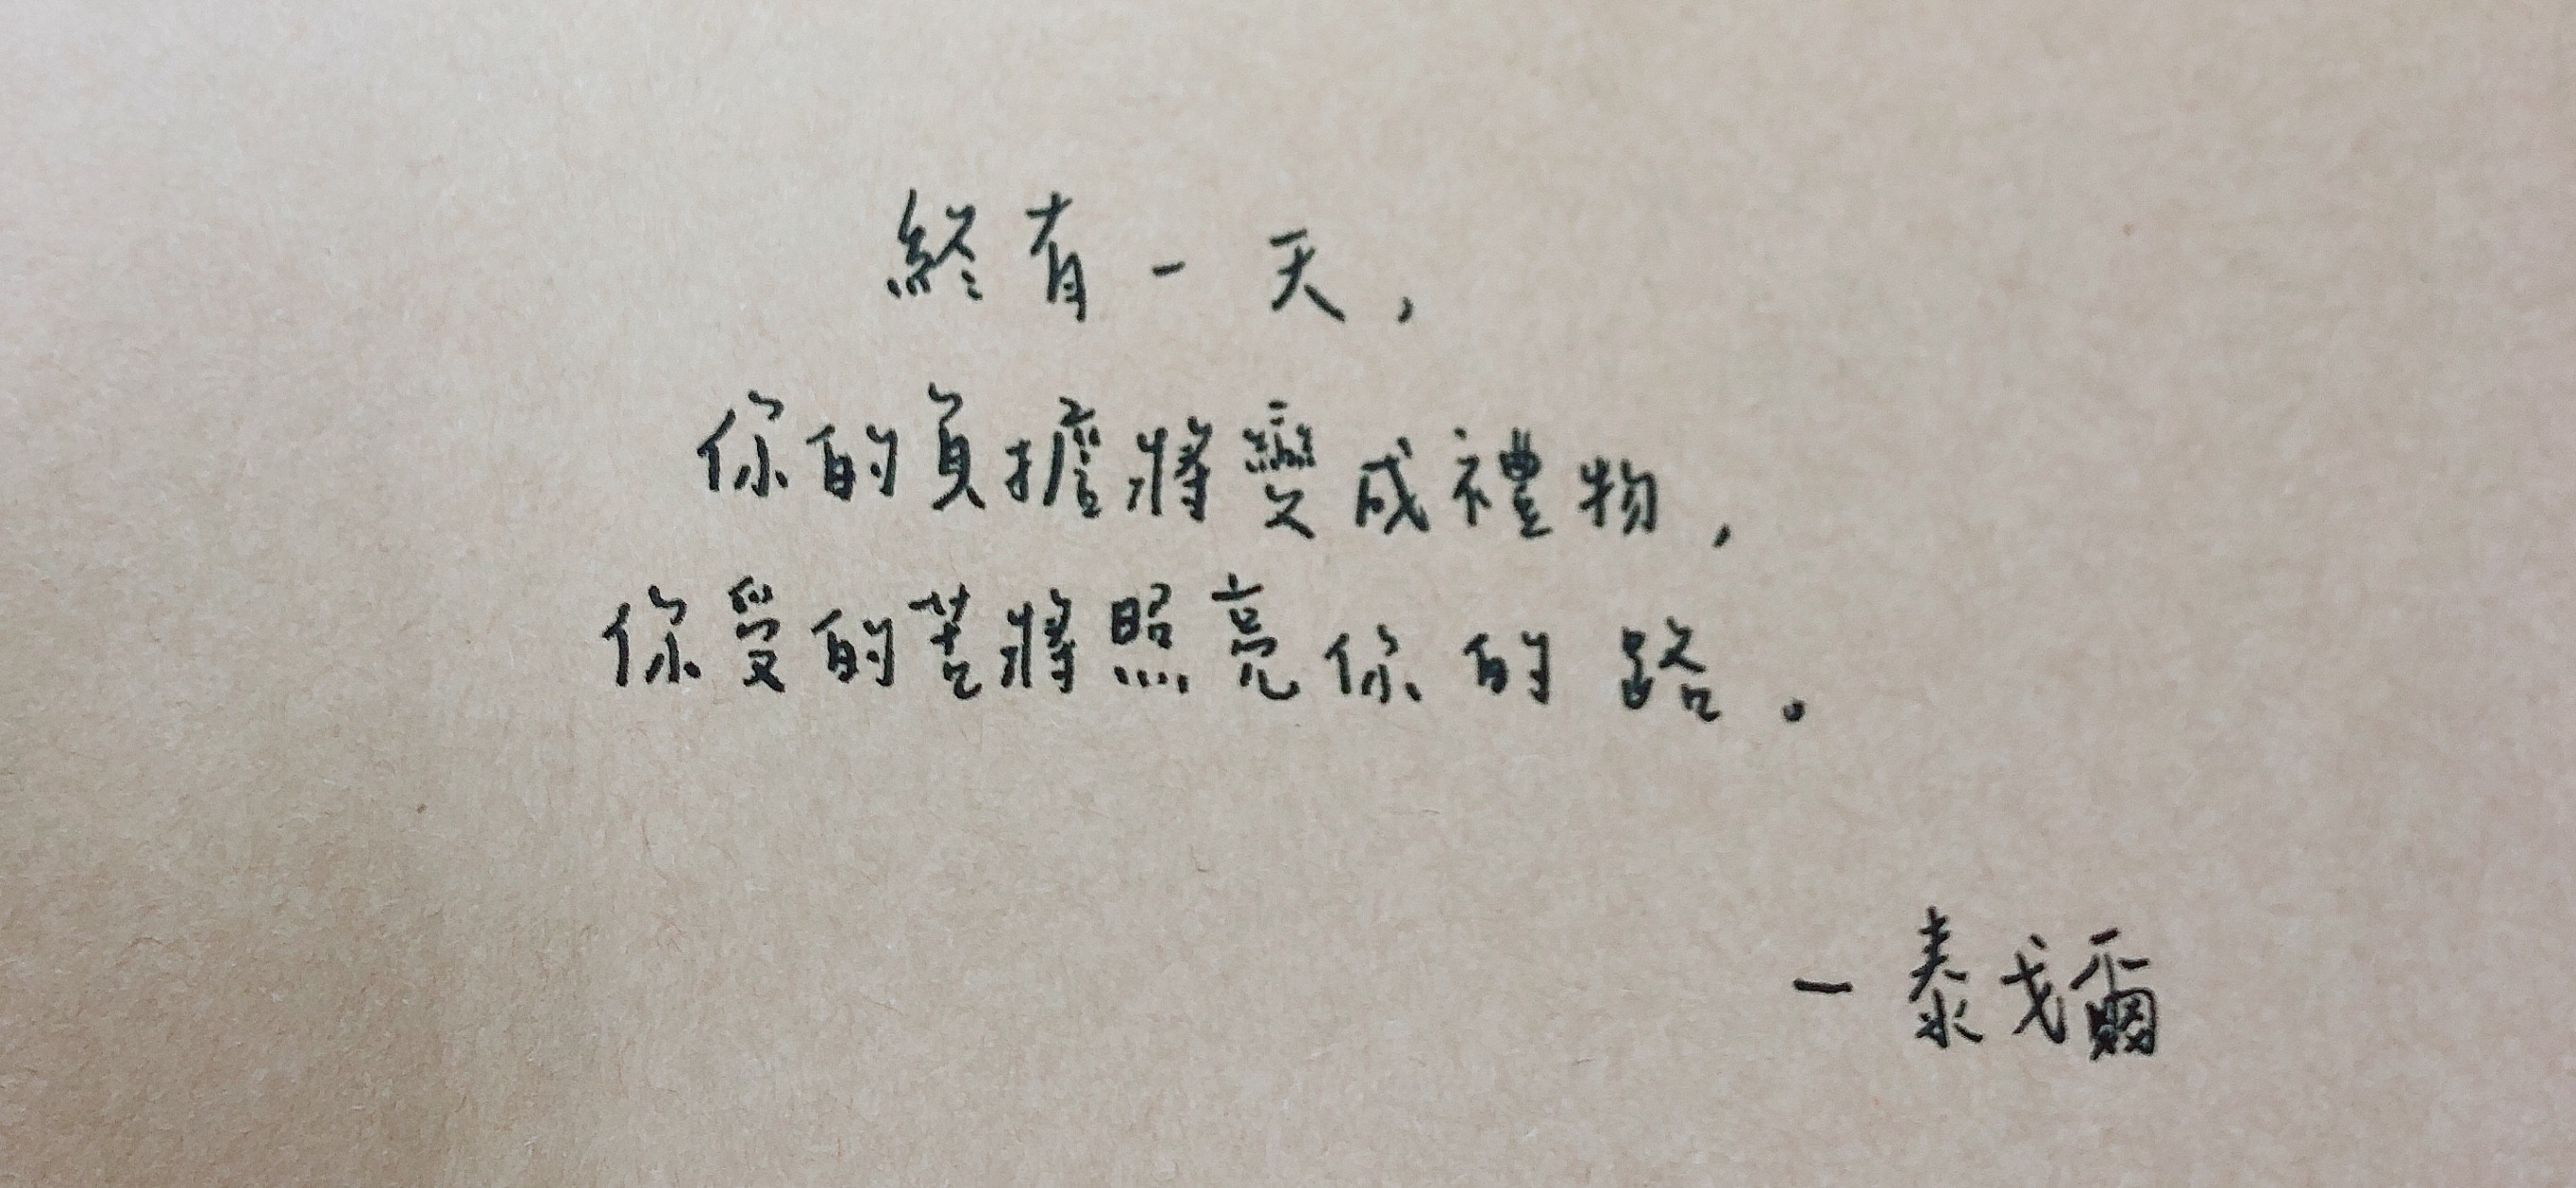 終有一天，
你的負擔將變成禮物，
你受的苦將照亮你的路。
－泰戈爾